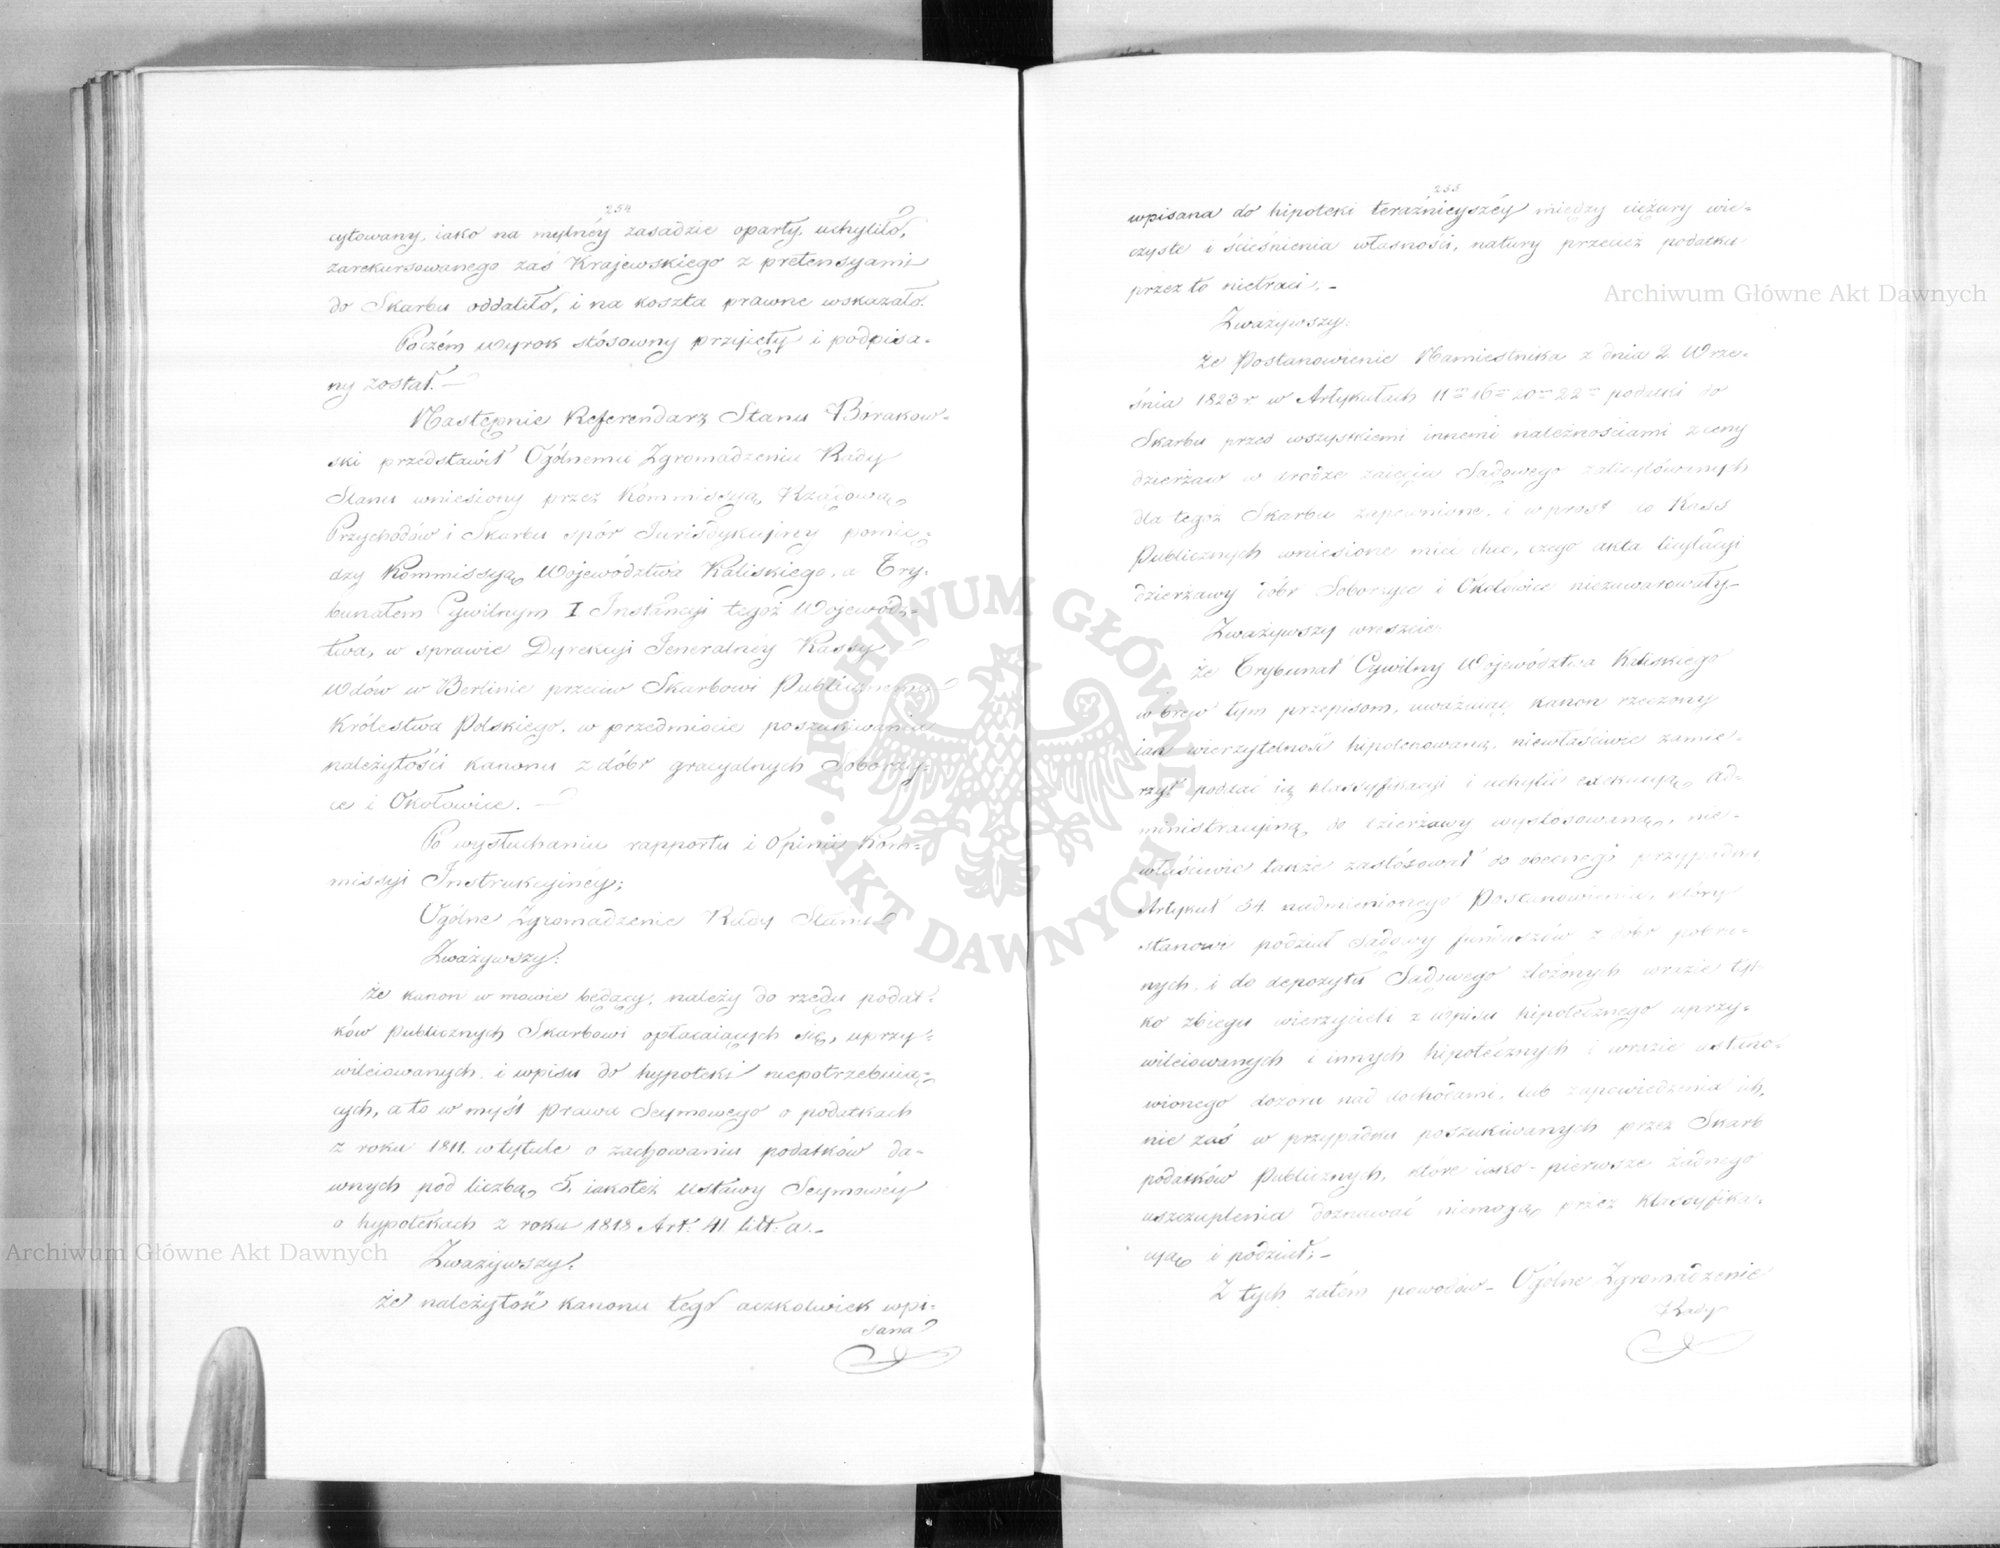 254
cytowany, iako na mylnéy zasadzie oparty, uchyliło,
zarekursowanego zaś Krajewskiego z pretensyami
do Skarbu oddaliło, i na koszta prawne wskazało.
Poczém wyrok stósowny przyięty i podpisa-
ny został. —
Następnie Referendarz Stanu Birakow-
ski przedstawił Ogólnemu Zgromadzeniu Rady
Stanu wniesiony przez Kommissyą Rządową
Przychodów i Skarbu spór Jurisdykcyjny pomię-
dzy Kommissyą Województwa Kaliskiego, a Try-
bunałem Cywilnym I. Instancyi tegoż Województ-
twa, w sprawie Dyrekcyi Jeneralnéy Kassy
Wdów w Berlinie przeciw Skarbowi Publicznemu
Królestwa Polskiego, w przedmiocie poszukiwania
należytości kanonu z dóbr gracyalnych Soborzy-
ce i Okołowice. —
Po wysłuchaniu rapportu i Opinii Kom-
missyi Instrukcyinéy;
Ogólne Zgromadzenie Rady Stanu
Zważywszy:
że kanon w mowie będący, należy do rzędu podat-
ków publicznych Skarbowi opłacaiących się, uprzy-
wileiowanych, i wpisu do hypoteki niepotrzebuią-
cych, a to w myśl prawa Seymowego o podatkach
z roku 1811. w tytule o zachowaniu podatków da-
wnych pod liczbą 5, iakoteż Ustawy Seymowéy
o hypotekach z roku 1818 Art: 41. litt. a. -
Zważywszy,
że należytość kanonu tego aczkolwiek wpi-
sana
255
wpisana do hipoteki teraźnieyszéy między ciężary wie-
czyste i ścieśnienia własności, natury przecież podatku
przez to nietraci. -
Zważywszy:
że Postanowienie Namiestnika z dnia 2. Wrze-
śnia 1823 r. w Artykułach 11m 16m 20m 22m podatki do
Skarbu przed wszystkiemi innemi należnościami z ceny
dzierżaw w drodze zaięcia Sądowego zalicytowanych
dla tegoż Skarbu zapewnione, i wprost do Kass
Publicznych wniesione mieć chce, czego akta licytacyi
dzierżawy dóbr Soborzyce i Okołowice niezawarowały -
Zważywszy wreszcie:
że Trybunał Cywilny Województwa Kaliskiego
wbrew tym przepisom, uważaiąc kanon rzeczony
iak wierzytelność hipotekowaną, niewłaściwie zamie-
rzył poddać ią klassyfikacyi i uchylić exekucyą Ad-
ministracyiną do dzierżawy wystosowaną, nie-
właściwie także zastósował do obecnego przypadku
Artykuł 34. nadmienionego Postanowienia, który
stanowi podział Sądowy funduszów z dóbr pobra-
nych, i do depozytu Sądowego złożonych w razie tyl-
ko zbiegu wierzycieli z wpisu hipotecznego uprzy-
wileiowanych i innych hipotecznych i w razie ustano-
wionego dozoru nad dochodami, lub zapowiedzenia ich,
nie zaś w przypadku poszukiwanych przez Skarb
podatków Publicznych, które iako - pierwsze żadnego
uszczuplenia doznawać niemogą przez klassyfika-
cyą i podział; -
Z tych zatém powodów - Ogólne Zgromadzenie
Rady
Archiwum Główne Akt Dawnych
Archiwum Główne Akt Dawnych
ARCHIWUM GŁÓWNE • AKT DAWNYCH •